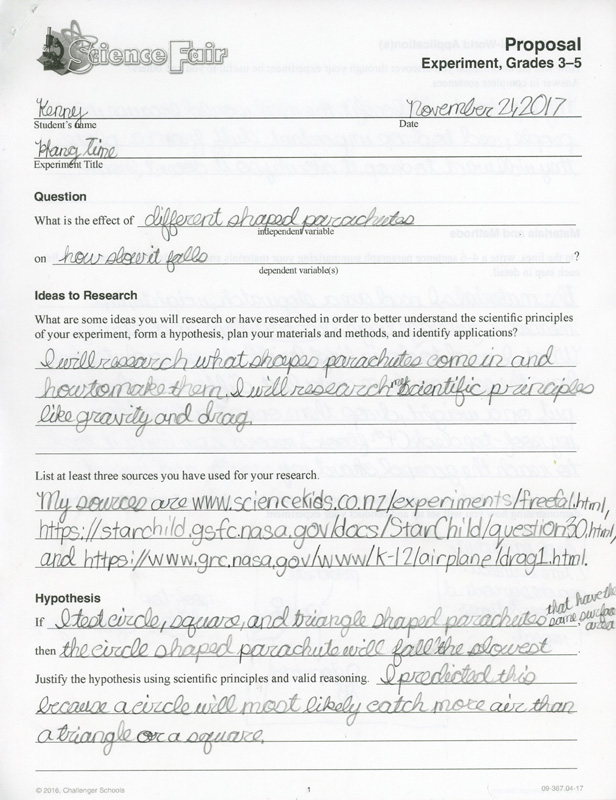 Science Fair
Proposal
Experiment, Grades 3–5
Kenny
November 21, 2017
Student's name
Date
Hang Time
Experiment Title
Question
What is the effect of different shaped parachutes
independent variable
on how slow it falls ?
dependent variable(s)
Ideas to Research
What are some ideas you will research or have researched in order to better understand the scientific principles
of your experiment, form a hypothesis, plan your materials and methods, and identify applications?
I will research what shapes parachutes come in and
how to make them. I will research my scientific principles
like gravity and drag.
List at least three sources you have used for your research.
My sources are www.sciencekids.co.nz/experiments/freefall.html,
https://starchild.gsfc.nasa.gov/docs/StarChild/question30.html,
and https://www.grc.nasa.gov/www/k-12/airplane/drag1.html.
Hypothesis
If I test circle, square, and triangle shaped parachutes that have the same surface area
then the circle shaped parachute will fall the slowest.
Justify the hypothesis using scientific principles and valid reasoning. I predicted this
because a circle will most likely catch more air than
a triangle or a square.
© 2016, Challenger Schools
1
09-367.04-17